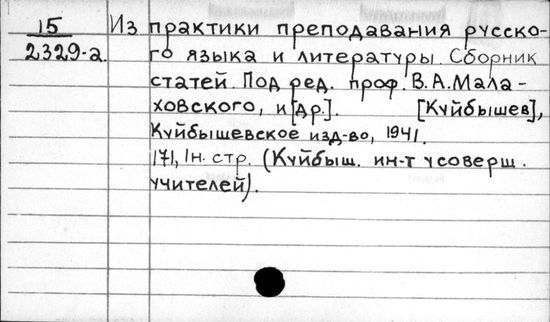 15
2329-а.
Из практики преподавания русско-
го языка и литературы. Сборник
статей. Под ред. проф. В.А.Мала-
ховского, и [др.]. [Куйбышев],
Куйбышевское изд-во, 1941.
171, 1н. стр. (Куйбыш. ин-т усоверш.
учителей).